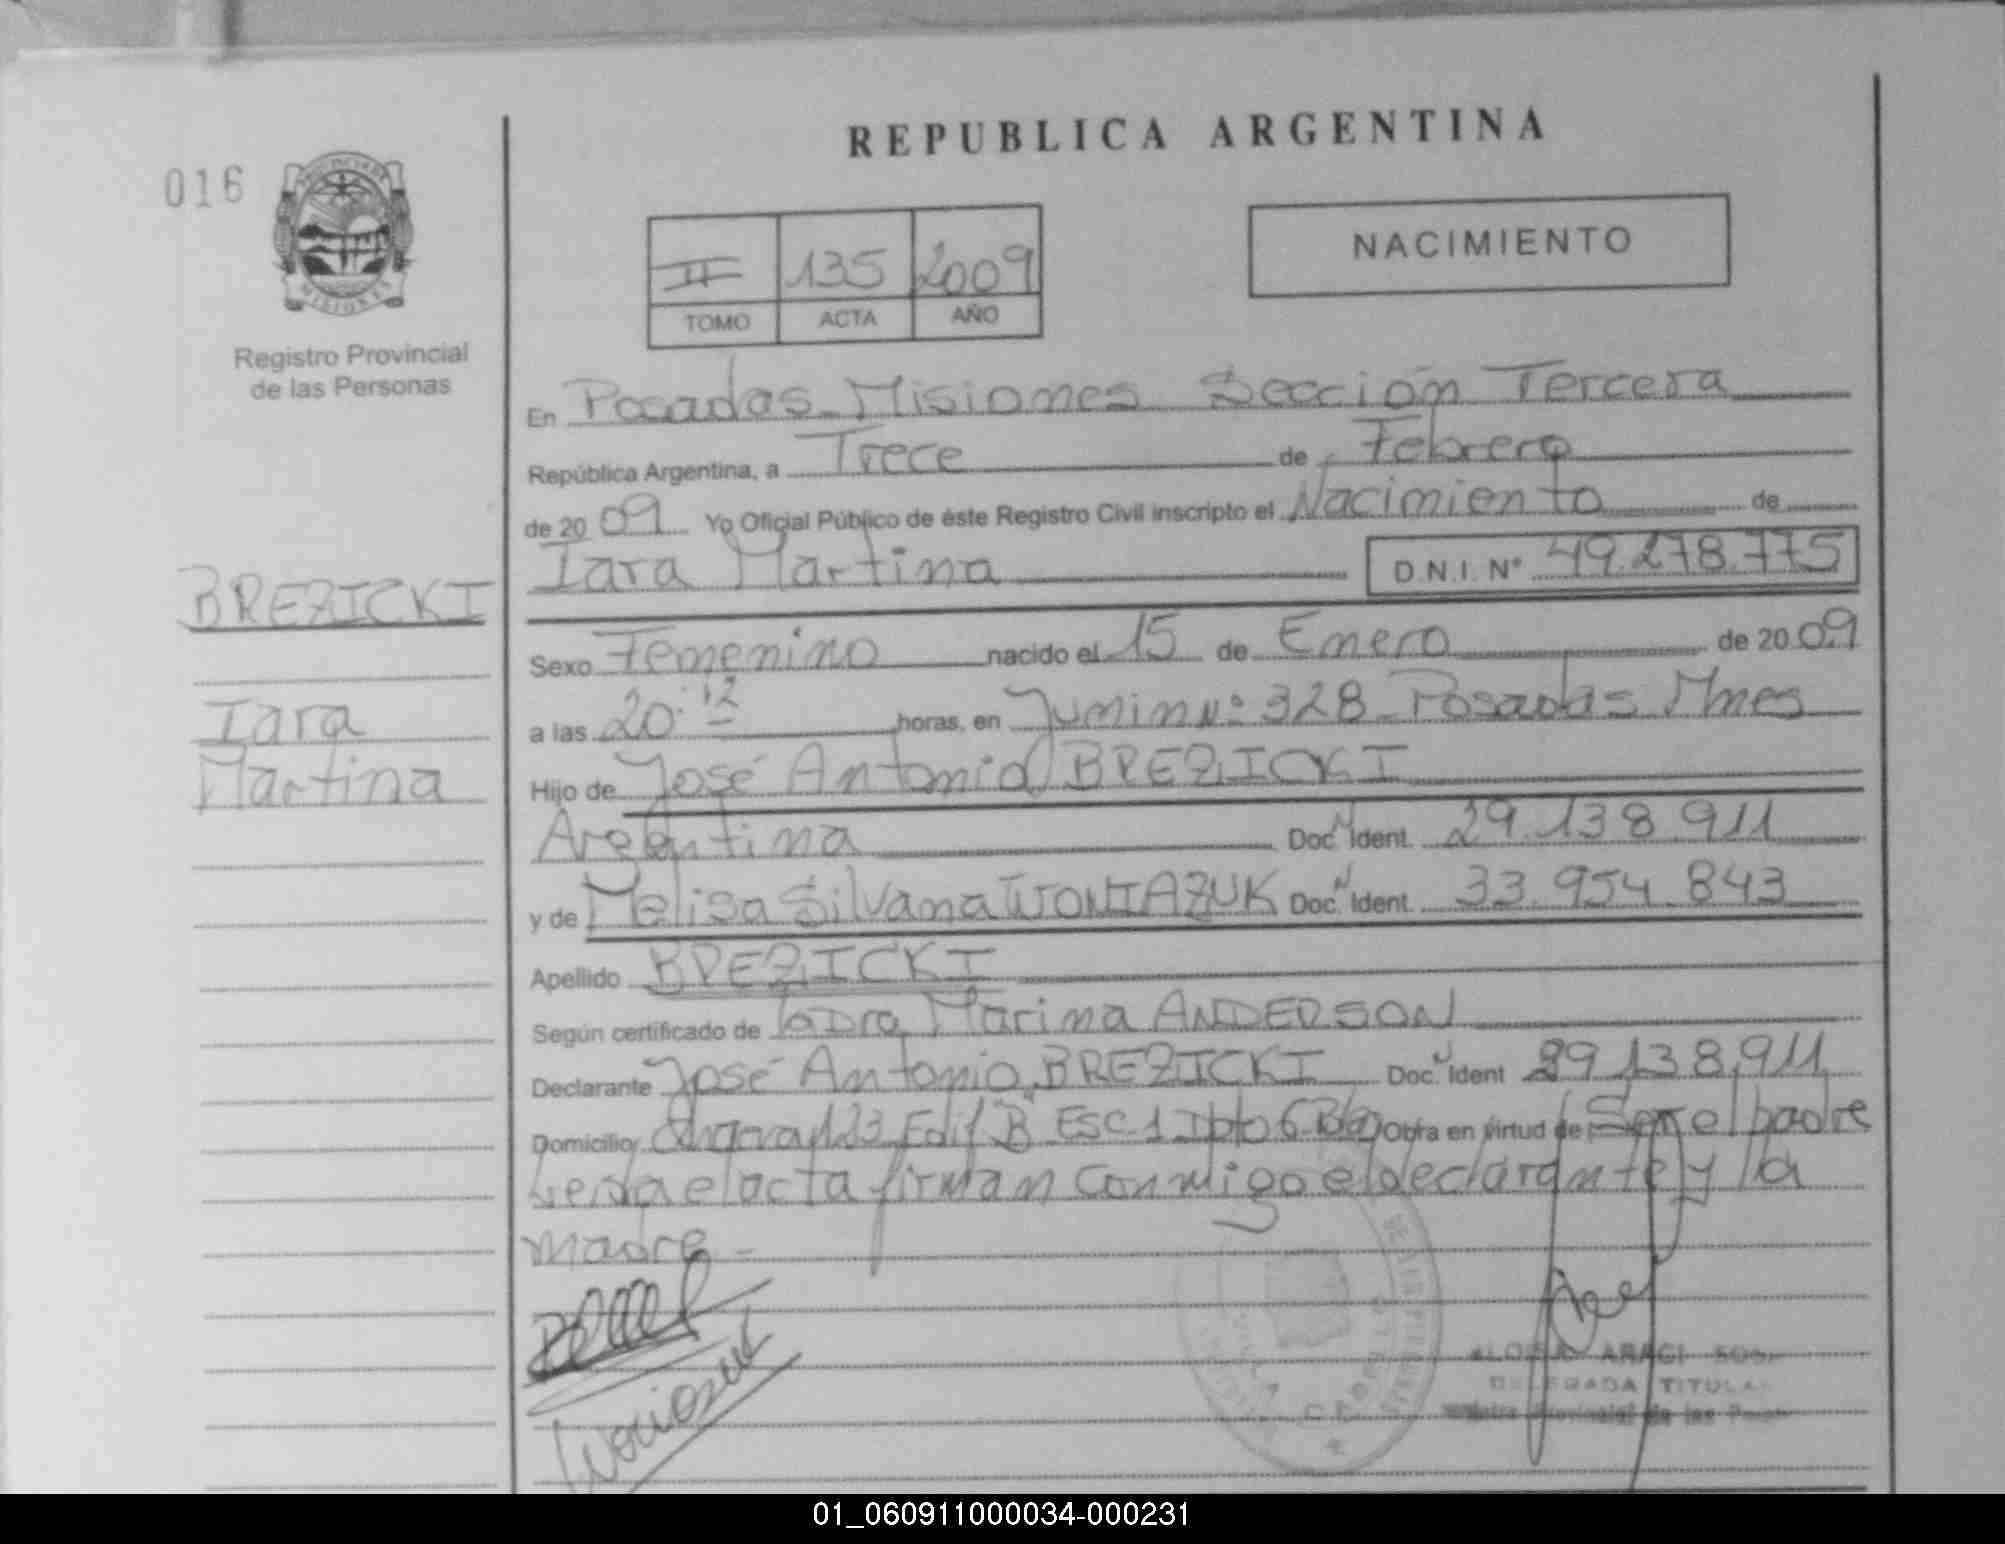 REPUBLICA ARGENTINA
016
PROVINCIA DE
MISIONES
Registro Provincial
de las Personas
II 135 2009
TOMO ACTA AÑO
NACIMIENTO
En Posadas Misiones Sección Tercera
República Argentina, a Trece de Febrero
de 20 09 Yo Oficial Público de éste Registro Civil inscripto el Nacimiento de
Iara Martina D.N.I. Nº 49.278.775
BREZICKI
Iara
Martina
Sexo Femenino nacido el 15 de Enero de 20 09
a las 20:12 horas, en Junin Nº 328 Posadas Mnes
Hijo de José Antonio BREZICKI
Argentina Doc. N Ident. 29.138.911
y de Melisa Silvana WONIAZUK Doc. N Ident. 33.954.843
Apellido BREZICKI
Según certificado de la Dra. Marina ANDERSON
Declarante José Antonio BREZICKI Doc. N Ident 29.138.911
Domicilio 123 Edif B Esc. 1 Dpto 6 Obra en virtud de Ser el padre
leida el acta firman conmigo el declarante y la
madre -
ARAGI
DELEGADA TITULAR
Provincial de las
01_060911000034-000231